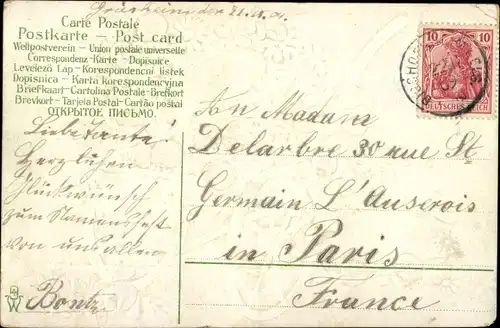 Griesheim den 21.8.01.
Carte Postale
Postkarte — Post card
Weltpostverein - Union postale universelle
Correspondenz-Karte - Dopisnice
Levelező Lap - Korespondenční lístek
Dopisnica - Karta korespondencyjna
Briefkaart - Cartolina Postale - Brefkort
Brevkort - Tarjeta Postal - Cartão postal
ОТКРЫТОЕ ПИСЬМО.
Liebe Tante!
Herzlichen
Glückwünsch
zum Namensfest
von uns allen
Bontz
An Madame
Delarbre 30 rue St
Germain L'Auxerois
in Paris
France
10 10
DEUTSCHES REICH